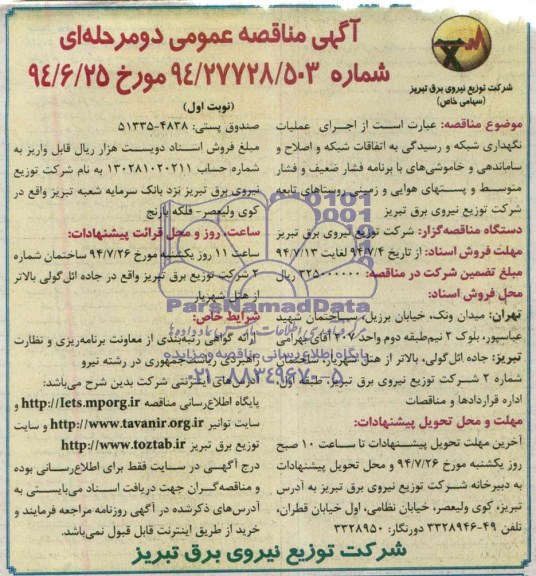 آگهی مناقصه عمومی دومرحله‌ای
شماره ۹۴/۲۷۷۲۸/۵۰۳ مورخ ۹۴/۶/۲۵
(نوبت اول)
شرکت توزیع نیروی برق تبریز
(سهامی خاص)
موضوع مناقصه: عبارت است از اجرای عملیات
نگهداری شبکه و رسیدگی به اتفاقات شبکه و اصلاح و
ساماندهی و خاموشی‌های با برنامه فشار ضعیف و فشار
متوسط و پستهای هوایی و زمینی روستاهای تابعه
شرکت توزیع نیروی برق تبریز
دستگاه مناقصه‌گزار: شرکت توزیع نیروی برق تبریز
مهلت فروش اسناد: از تاریخ ۹۴/۷/۴ لغایت ۹۴/۷/۱۳
مبلغ تضمین شرکت در مناقصه: ۳۲۵۰۰۰۰۰۰ ریال
محل فروش اسناد:
تهران: میدان ونک، خیابان برزیل، ساختمان شهید
عباسپور، بلوک ۲ نیم‌طبقه دوم واحد ۲۰۷ آقای بهرامی
تبریز: جاده ائل‌گولی، بالاتر از هتل شهریار، ساختمان
شماره ۲ شرکت توزیع نیروی برق تبریز، طبقه اول،
اداره قراردادها و مناقصات
مهلت و محل تحویل پیشنهادات:
آخرین مهلت تحویل پیشنهادات تا ساعت ۱۰ صبح
روز یکشنبه مورخ ۹۴/۷/۲۶ و محل تحویل پیشنهادات
به دبیرخانه شرکت توزیع نیروی برق تبریز به آدرس
تبریز، کوی ولیعصر، خیابان نظامی، اول خیابان قطران،
تلفن ۴۹-۳۳۲۸۹۴۶ دورنگار: ۳۳۲۸۹۵۰
صندوق پستی: ۴۸۳۸-۵۱۳۳۵
مبلغ فروش اسناد دویست هزار ریال قابل واریز به
شماره حساب ۱۳۰۲۸۱۰۲۰۲۱۱ به نام شرکت توزیع
نیروی برق تبریز نزد بانک سرمایه شعبه تبریز واقع در
کوی ولیعصر- فلکه بارنج
ساعت، روز و محل قرائت پیشنهادات:
ساعت ۱۱ روز یکشنبه مورخ ۹۴/۷/۲۶ ساختمان شماره
۲ شرکت توزیع برق تبریز واقع در جاده ائل‌گولی بالاتر
از هتل شهریار
شرایط خاص:
ارائه گواهی رتبه‌بندی از معاونت برنامه‌ریزی و نظارت
راهبردی ریاست‌جمهوری در رشته نیرو
آدرس‌های اینترنتی شرکت بدین شرح می‌باشد:
پایگاه اطلاع‌رسانی مناقصه http://Iets.mporg.ir و
سایت توانیر http://www.tavanir.org.ir و سایت
توزیع برق تبریز http://www.toztab.ir
درج آگهی در سایت فقط برای اطلاع‌رسانی بوده
و مناقصه‌گران جهت دریافت اسناد می‌بایستی به
آدرس‌های ذکرشده در آگهی روزنامه مراجعه فرمایند و
خرید از طریق اینترنت قابل قبول نمی‌باشد.
شرکت توزیع نیروی برق تبریز
ParsNamadData
پایگاه اطلاع رسانی مناقصه و مزایده
۰۲۱-۸۸۳۴۹۶۷۰-۵